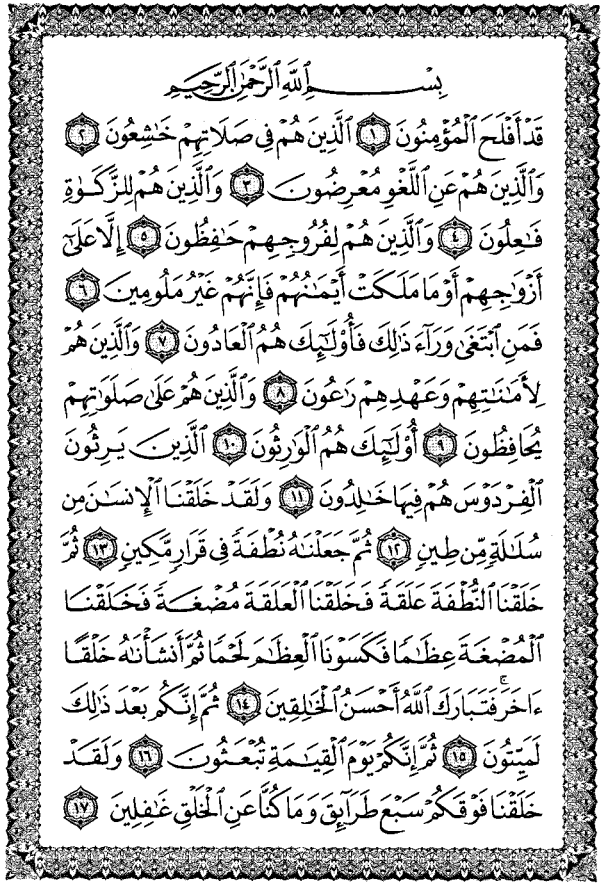 بِسْمِ اللَّهِ الرَّحْمَٰنِ الرَّحِيمِ
قَدْ أَفْلَحَ الْمُؤْمِنُونَ ١ الَّذِينَ هُمْ فِي صَلَاتِهِمْ خَاشِعُونَ ٢
وَالَّذِينَ هُمْ عَنِ اللَّغْوِ مُعْرِضُونَ ٣ وَالَّذِينَ هُمْ لِلزَّكَوٰةِ
فَاعِلُونَ ٤ وَالَّذِينَ هُمْ لِفُرُوجِهِمْ حَافِظُونَ ٥ إِلَّا عَلَىٰ
أَزْوَاجِهِمْ أَوْ مَا مَلَكَتْ أَيْمَٰنُهُمْ فَإِنَّهُمْ غَيْرُ مَلُومِينَ ٦
فَمَنِ ابْتَغَىٰ وَرَآءَ ذَٰلِكَ فَأُولَٰئِكَ هُمُ الْعَادُونَ ٧ وَالَّذِينَ هُمْ
لِأَمَٰنَٰتِهِمْ وَعَهْدِهِمْ رَاعُونَ ٨ وَالَّذِينَ هُمْ عَلَىٰ صَلَوَاتِهِمْ
يُحَافِظُونَ ٩ أُولَٰئِكَ هُمُ الْوَارِثُونَ ١٠ الَّذِينَ يَرِثُونَ
الْفِرْدَوْسَ هُمْ فِيهَا خَالِدُونَ ١١ وَلَقَدْ خَلَقْنَا الْإِنسَٰنَ مِن
سُلَٰلَةٍ مِّن طِينٍ ١٢ ثُمَّ جَعَلْنَاهُ نُطْفَةً فِي قَرَارٍ مَّكِينٍ ١٣ ثُمَّ
خَلَقْنَا النُّطْفَةَ عَلَقَةً فَخَلَقْنَا الْعَلَقَةَ مُضْغَةً فَخَلَقْنَا
الْمُضْغَةَ عِظَٰمًا فَكَسَوْنَا الْعِظَٰمَ لَحْمًا ثُمَّ أَنشَأْنَاهُ خَلْقًا
ءَاخَرَ ۚ فَتَبَارَكَ اللَّهُ أَحْسَنُ الْخَالِقِينَ ١٤ ثُمَّ إِنَّكُم بَعْدَ ذَٰلِكَ
لَمَيِّتُونَ ١٥ ثُمَّ إِنَّكُمْ يَوْمَ الْقِيَامَةِ تُبْعَثُونَ ١٦ وَلَقَدْ
خَلَقْنَا فَوْقَكُمْ سَبْعَ طَرَآئِقَ وَمَا كُنَّا عَنِ الْخَلْقِ غَافِلِينَ ١٧